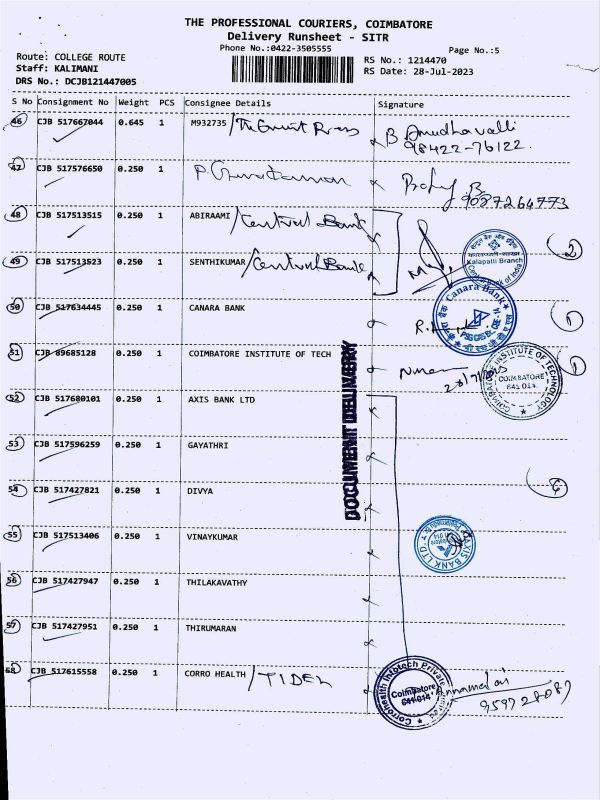 THE PROFESSIONAL COURIERS, COIMBATORE
Delivery Runsheet - SITR
Phone No.:0422-3505555
Page No.:5
Route: COLLEGE ROUTE
Staff: KALIMANI
DRS No.: DCJB121447005
RS No.: 1214470
RS Date: 28-Jul-2023
S No Consignment No Weight PCS Consignee Details Signature
46 CJB 517667044 0.645 1 M932735 / B Anudhavalli
98422-76122.
47 CJB 517576650 0.250 1
9087264773
48 CJB 517513515 0.250 1 ABIRAAMI / Central Bank
Kalapatti Branch
49 CJB 517513523 0.250 1 SENTHIKUMAR / Central Bank
50 CJB 517634445 0.250 1 CANARA BANK
Canara Bank
51 CJB 89685128 0.250 1 COIMBATORE INSTITUTE OF TECH
COIMBATORE INSTITUTE OF TECHNOLOGY
COIMBATORE
641 014.
DOCUMENT DELIVERY
52 CJB 517680101 0.250 1 AXIS BANK LTD
53 CJB 517596259 0.250 1 GAYATHRI
54 CJB 517427821 0.250 1 DIVYA
AXIS BANK LTD
55 CJB 517513406 0.250 1 VINAYKUMAR
56 CJB 517427947 0.250 1 THILAKAVATHY
57 CJB 517427951 0.250 1 THIRUMARAN
58 CJB 517615558 0.250 1 CORRO HEALTH / TIDEL
Corrohealth Infotech Private
Coimbatore
641 014
Annamalai